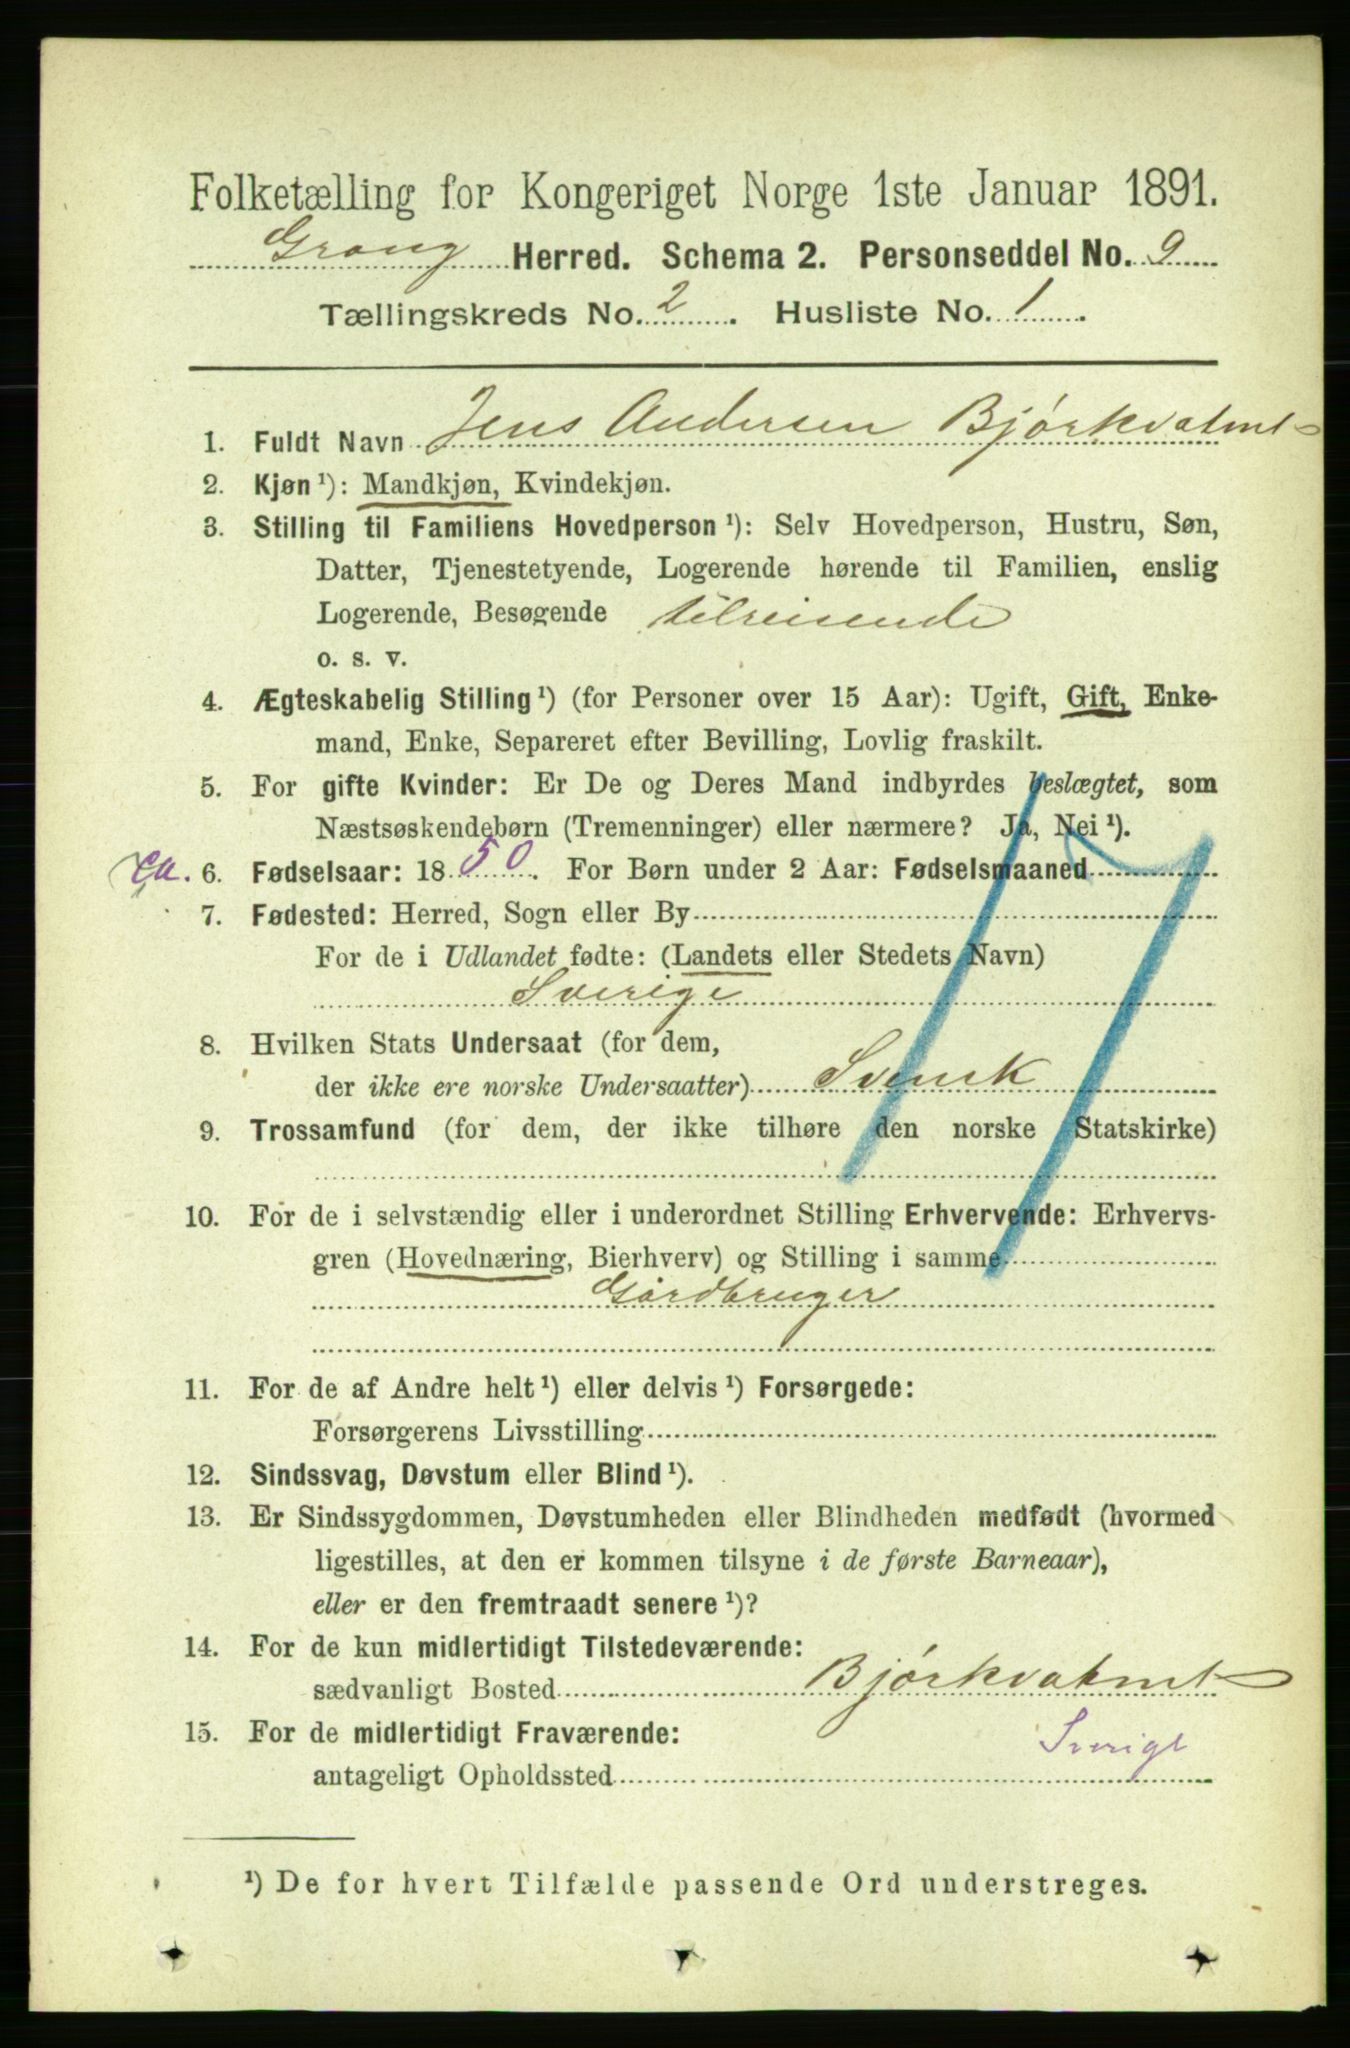 Folketælling for Kongeriget Norge 1ste Januar 1891.
Grong Herred. Schema 2. Personseddel No. 9
Tællingskreds No. 2. Husliste No. 1.
1. Fuldt Navn Jens Andersen Bjørkvatnet
2. Kjøn ¹): Mandkjøn, Kvindekjøn.
3. Stilling til Familiens Hovedperson ¹): Selv Hovedperson, Hustru, Søn,
Datter, Tjenestetyende, Logerende hørende til Familien, enslig
Logerende, Besøgende tilreisende
o. s. v.
4. Ægteskabelig Stilling ¹) (for Personer over 15 Aar): Ugift, Gift, Enke-
mand, Enke, Separeret efter Bevilling, Lovlig fraskilt.
5. For gifte Kvinder: Er De og Deres Mand indbyrdes beslægtet, som
Næstsøskendebørn (Tremenninger) eller nærmere? Ja, Nei ¹).
ca. 6. Fødselsaar: 1850. For Børn under 2 Aar: Fødselsmaaned
7. Fødested: Herred, Sogn eller By
For de i Udlandet fødte: (Landets eller Stedets Navn)
Sverige
8. Hvilken Stats Undersaat (for dem,
der ikke ere norske Undersaatter) Svensk
9. Trossamfund (for dem, der ikke tilhøre den norske Statskirke)
10. For de i selvstændig eller i underordnet Stilling Erhvervende: Erhvervs-
gren (Hovednæring, Bierhverv) og Stilling i samme
Gårdbruger
11. For de af Andre helt ¹) eller delvis ¹) Forsørgede:
Forsørgerens Livsstilling
12. Sindssvag, Døvstum eller Blind ¹).
13. Er Sindssygdommen, Døvstumheden eller Blindheden medfødt (hvormed
ligestilles, at den er kommen tilsyne i de første Barneaar),
eller er den fremtraadt senere ¹)?
14. For de kun midlertidigt Tilstedeværende:
sædvanligt Bosted Bjørkvatnet
15. For de midlertidigt Fraværende: Sverige
antageligt Opholdssted
¹) De for hvert Tilfælde passende Ord understreges.